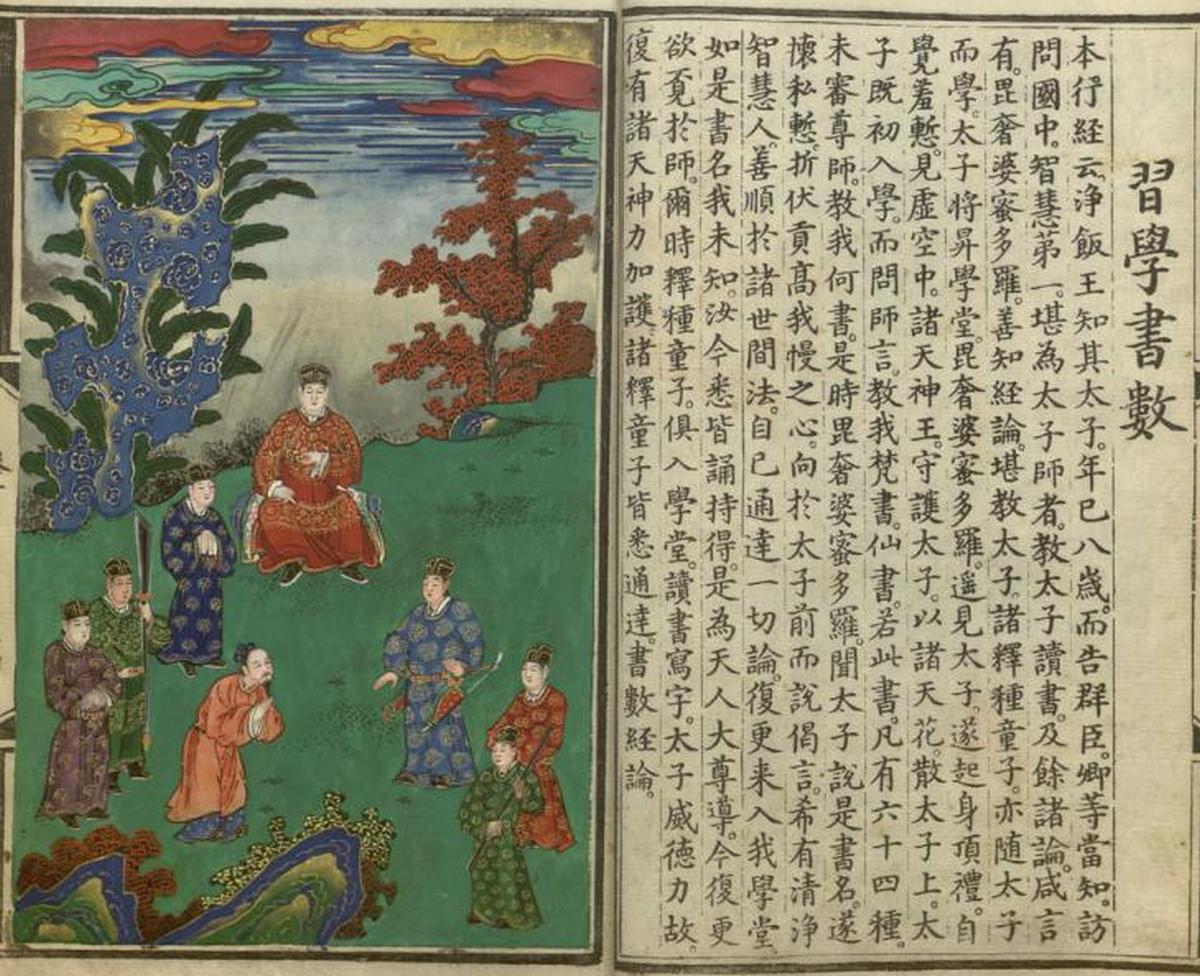 習學書數
本行経云。淨飯王知其太子。年已八歳。而告群臣。卿等當知。訪
問國中。智慧第一。堪為太子師者。教太子讀書。及餘諸論。咸言
有。毘奢婆蜜多羅。善知経論。堪教太子。諸釋種童子。亦随太子
而學。太子將昇學堂。毘奢婆蜜多羅。遥見太子。遂起身頂禮。自
覺羞慙。見虛空中。諸天神王。守護太子。以諸天花。散太子上。太
子既初入學。而問師言。教我梵書。仙書。若此書。凡有六十四種。
未審尊師。教我何書。是時毘奢婆蜜多羅。聞太子說是書名。遂
懐私慙。折伏貢高我慢之心。向於太子前而說偈言。希有清淨
智慧人。善順於諸世間法。自已通達一切論。復更来入我學堂。
如是書名我未知。汝今悉皆誦持得。是為天人大尊導。今復更
欲覔於師。爾時釋種童子。俱入學堂。讀書寫字。太子威德力故。
復有諸天神力加護。諸釋童子皆悉通達。書數経論。